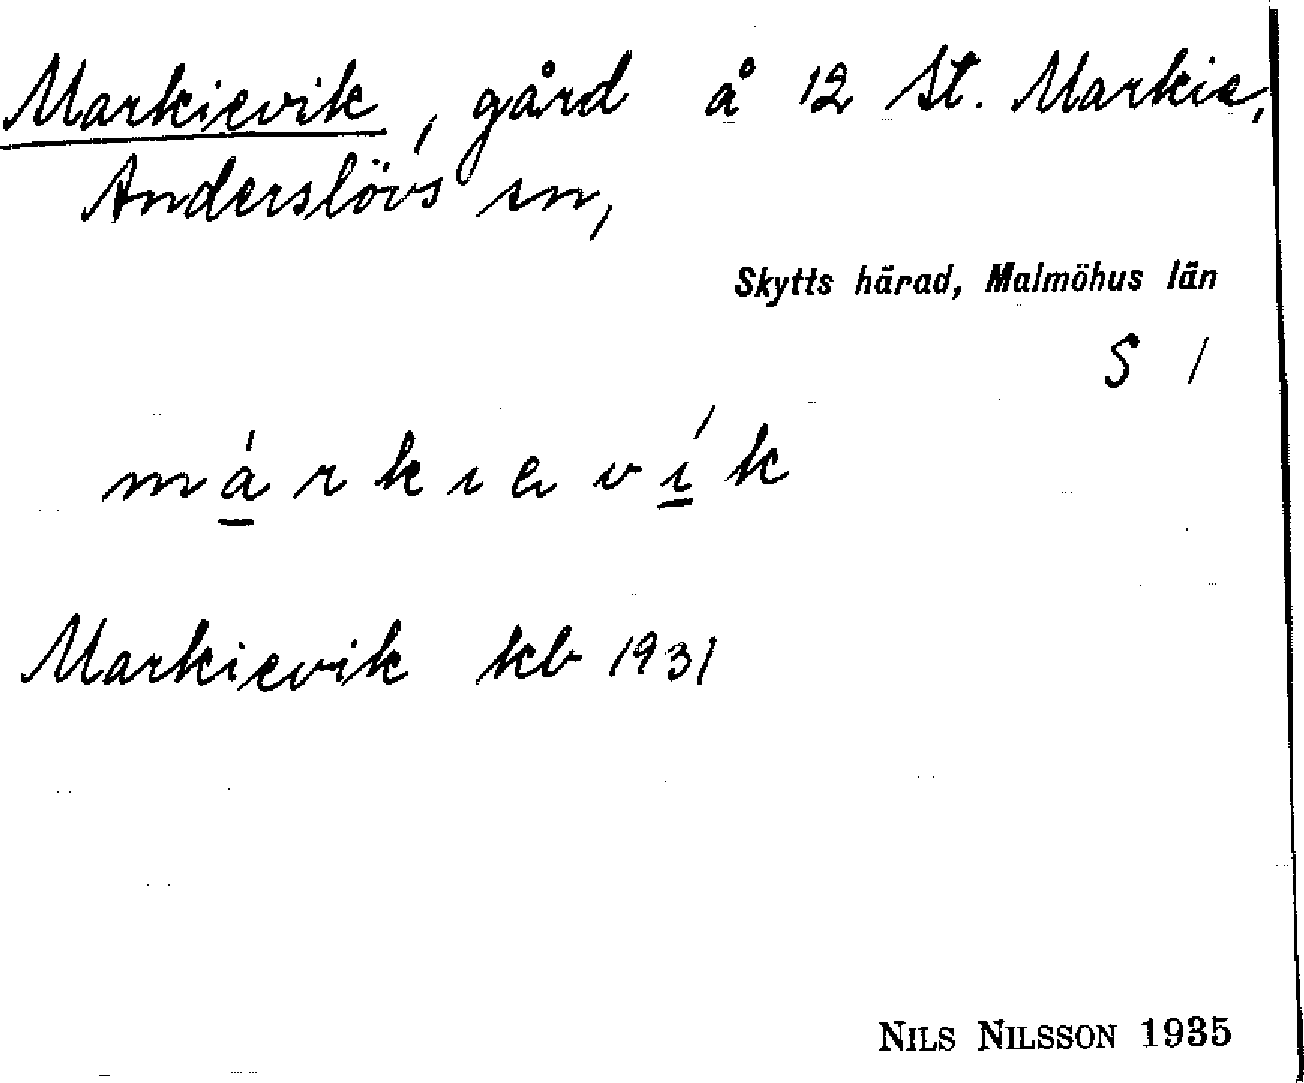 Markievik, gård å 12 St. Markie,
Anderslövs sn,
Skytts härad, Malmöhus län
S 1
márkievík
Markievik kb 1931
NILS NILSSON 1935